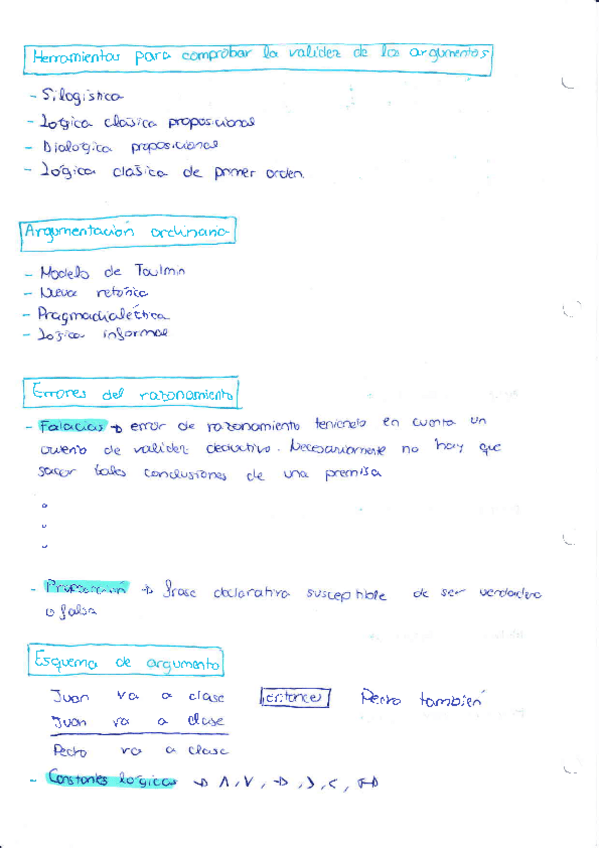 Herramientas para comprobar la validez de los argumentos
- Silogística
- Lógica clásica proposicional
- Dialógica proposicional
- Lógica clásica de primer orden.
Argumentación ordinaria
- Modelo de Toulmin
- Nueva retórica
- Pragmadialéctica
- Lógica informal
Errores del razonamiento
- Falacias → error de razonamiento teniendo en cuenta un
criterio de validez deductivo. Necesariamente no hay que
sacar tales conclusiones de una premisa
- Proposición → frase declarativa susceptible de ser verdadera
o falsa
Esquema de argumento
Juan va a clase entonces Pedro también
Juan va a clase
Pedro va a clase
- Constantes lógicas → ∧, ∨, →